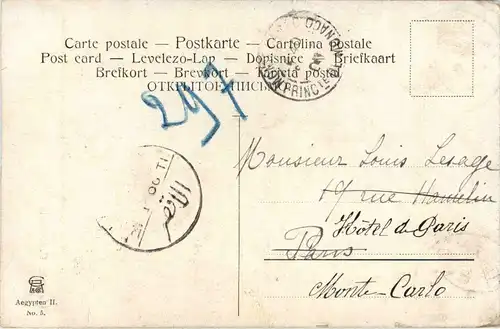 Carte postale – Postkarte – Cartolina postale
Post card – Levelezo-Lap – Dopisnice – Briefkaart
Brefkort – Brevkort – Tarjeta postal
ОТКРЫТОЕ ПИСЬМО
MONACO
PRINCIPAUTE
297
II 06 TI
الاقصر
Monsieur Louis Lesage
17 rue Hamelin
Hôtel de Paris
Paris
Monte-Carlo
Aegypten II.
No. 5.